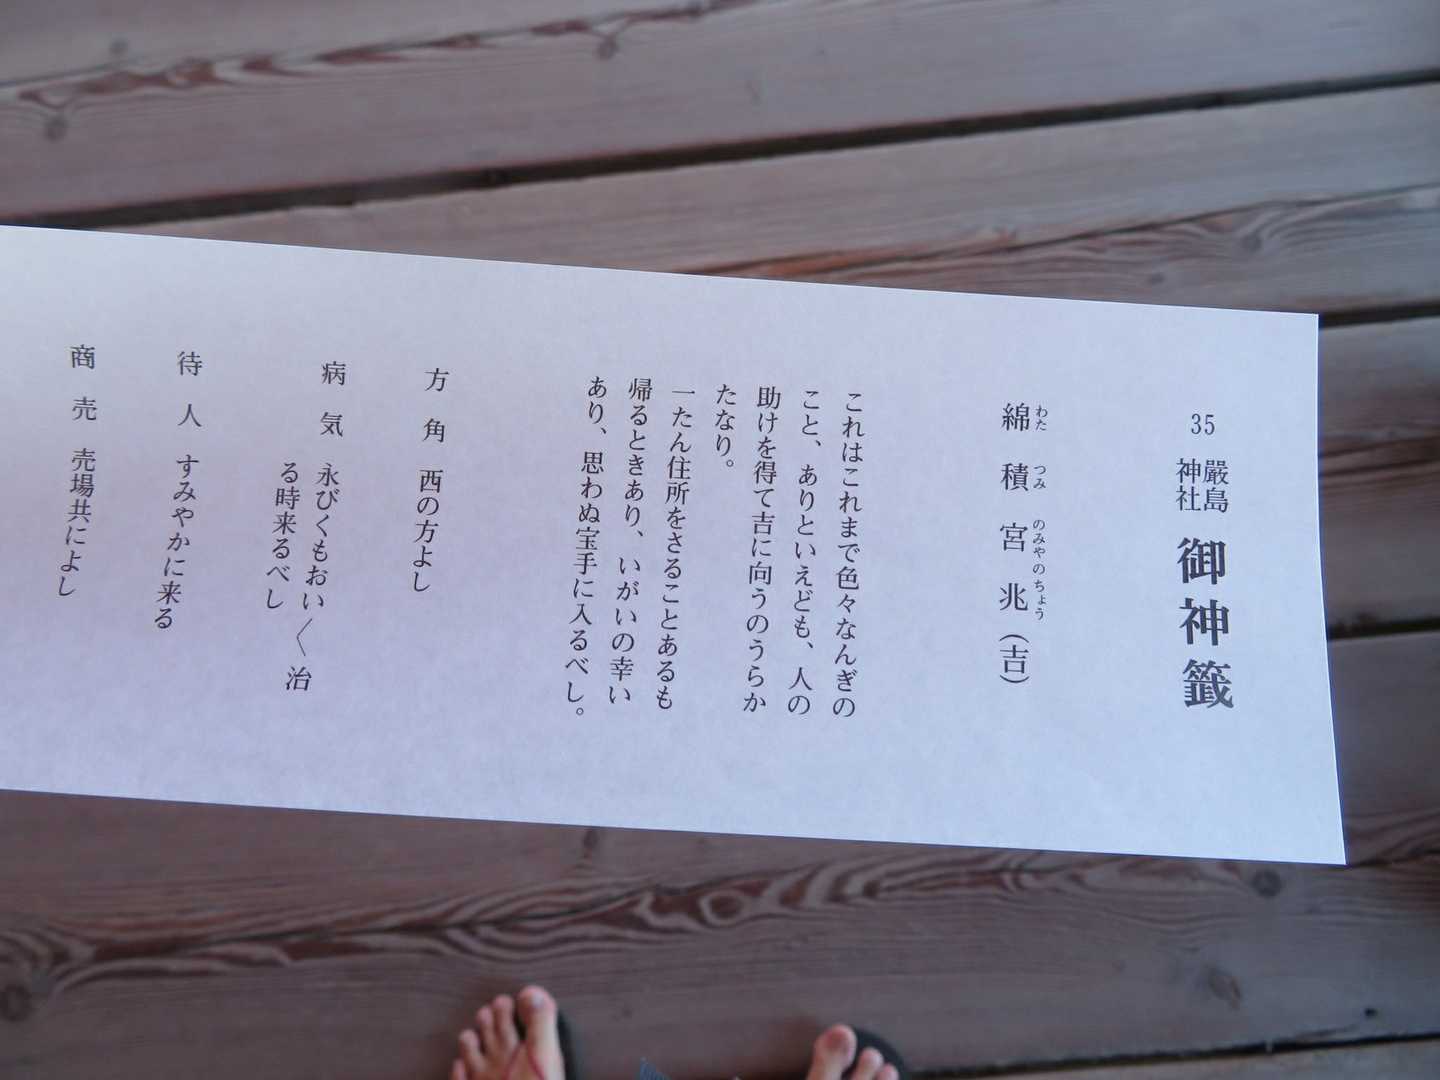 35 嚴島神社 御神籤
綿積宮兆（吉）
わたつみのみやのちょう
これはこれまで色々なんぎの
こと、ありといえども、人の
助けを得て吉に向うのうらか
たなり。
一たん住所をさることあるも
帰るときあり、いがいの幸い
あり、思わぬ宝手に入るべし。
方角 西の方よし
病気 永びくもおい〱治
る時来るべし
待人 すみやかに来る
商売 売場共によし